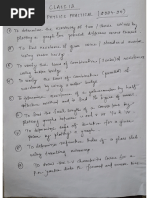 CLASS: 12
PHYSICS PRACTICAL [2024-25]
① To determine the resistivity of two / three wires by
plotting a graph for potential difference versus current
② To find resistance of given wire / standard resistor
using metre bridge
③ To verify the laws of combination (series) of
resistances using a metre bridge
④ To verify the laws of combination (parallel) of
resistances using a metre bridge
⑤ To determine resistance of galvanometer by half
deflection method and to find its figure of merit
⑥ To find the focal length of a convex lens by
plotting graphs between u and v or between 1/u and 1/v
⑦ To determine angle of minimum deviation for a given
prism by plotting a graph
⑧ To determine refractive index of a glass slab
using travelling microscope
⑨ To draw the I-V characteristic curve for a
p-n junction diode in forward and reverse